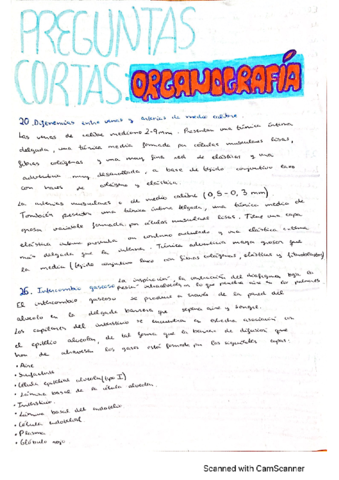 PREGUNTAS
CORTAS: ORGANOGRAFÍA
20. Diferencias entre venas y arterias de medio calibre.
Las venas de calibre mediano 2-9 mm. Presentan una túnica interna
delgada, una túnica media formada por células musculares lisas,
fibras colágenas y una muy fina red de elásticas y una
adventicia muy desarrollada, a base de tejido conjuntivo laxo
con haces de colágeno y elástica.
La arterias musculares o de medio calibre (0,5-0,3 mm)
También presenta una túnica interna delgada, una túnica media de
grosor variable formada por células musculares lisas. Tiene una capa
elástica interna presenta un contorno ondulado y una elástica externa
más delgada que la interna. Túnica adventicia menos gruesa que
la media (tejido conjuntivo laxo con fibras colágenas, elásticas y fibroblastos)
26. Intercambio gaseoso
La inspiración, la contracción del diafragma baja la
presión intraalveolar lo que
El intercambio gaseoso se produce a través de la pared del
alveolo en la delgada barrera que separa aire y sangre.
Los capilares del intersticio se encuentran en estrecha asociación con
el epitelio alveolar, de tal forma que la barrera de difusión que
han de atravesar los gases está formada por las siguientes capas:
• Aire
• Surfactante
• Célula epitelial alveolar (tipo I)
• Lámina basal de la célula alveolar
• Intersticio
• Lámina basal del endotelio
• Célula endotelial
• Plasma
• Glóbulo rojo
Scanned with CamScanner